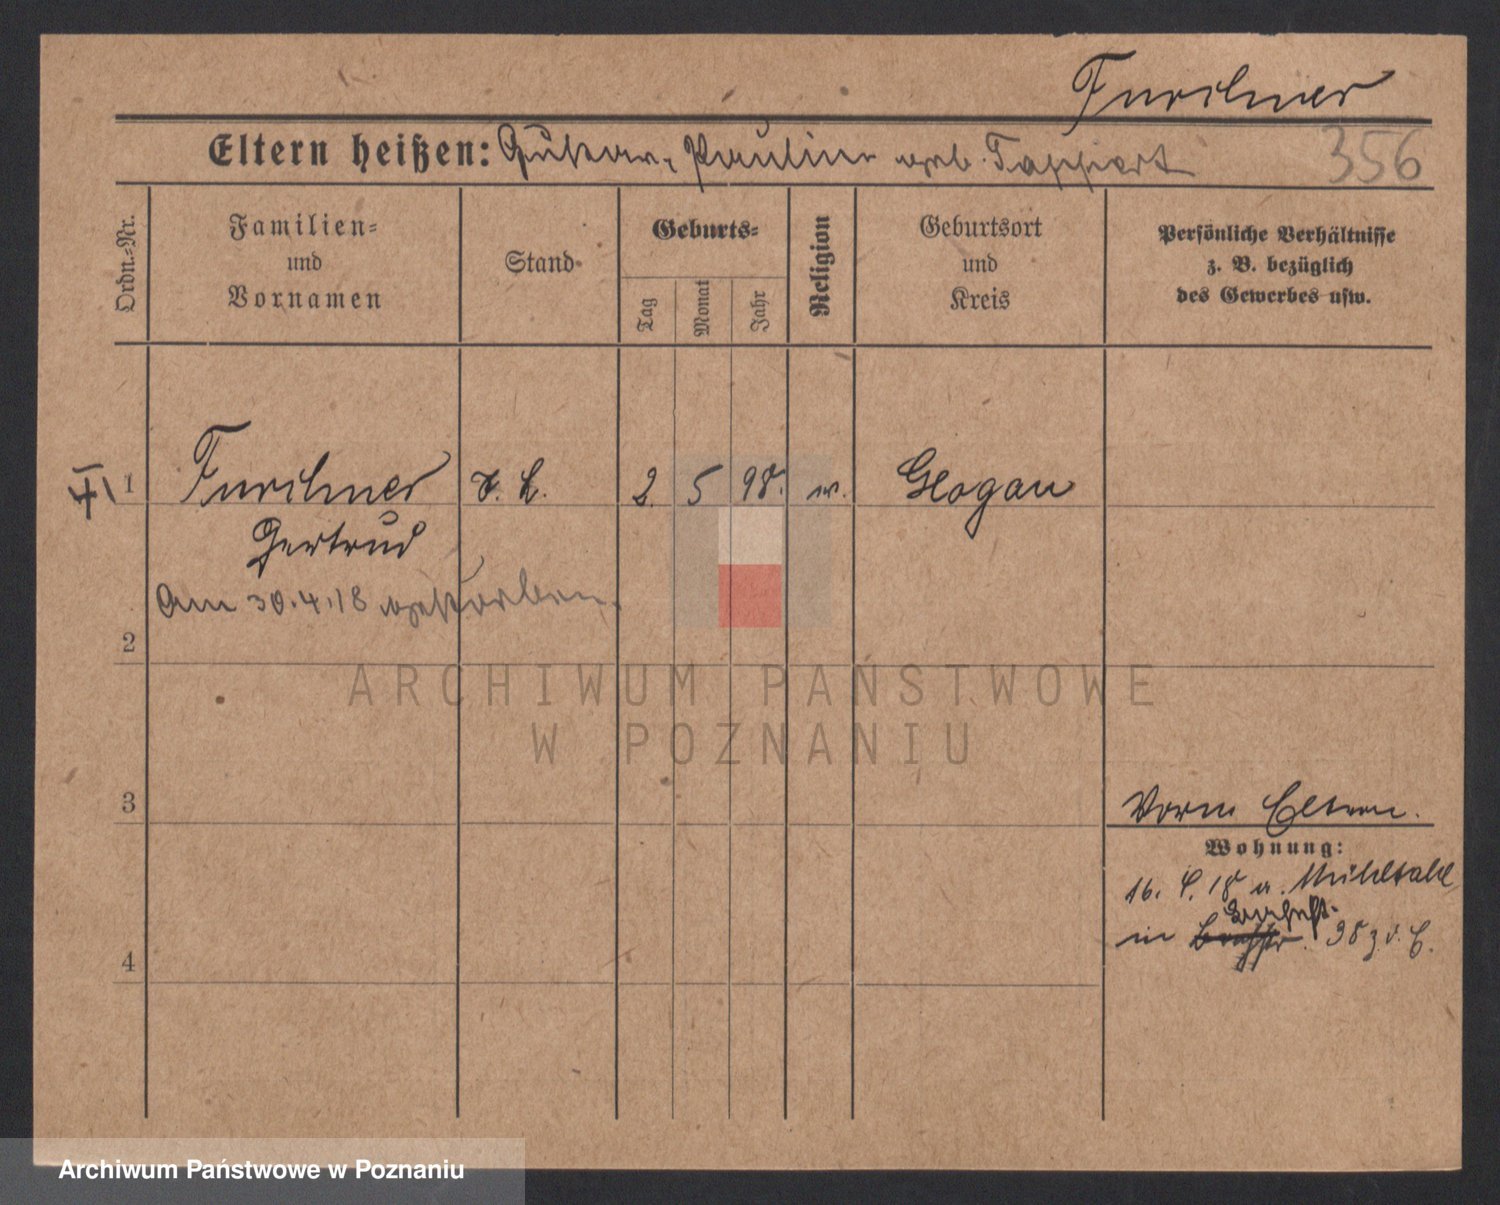 Furchner
Eltern heißen: Gustav, Pauline geb. Tappert
356
Ordn.-Nr.
Familien-
und
Vornamen
Stand
Geburts-
Tag
Monat
Jahr
Religion
Geburtsort
und
Kreis
Persönliche Verhältnisse
z. B. bezüglich
des Gewerbes usw.
1 Furchner 2. 5 98. Glogau
Gertrud
Am 30.4.18 gestorben.
2
3
4
Eltern.
Wohnung:
16. 4. 18 a. Mühltahl
in
ARCHIWUM PAŃSTWOWE
W POZNANIU
Archiwum Państwowe w Poznaniu